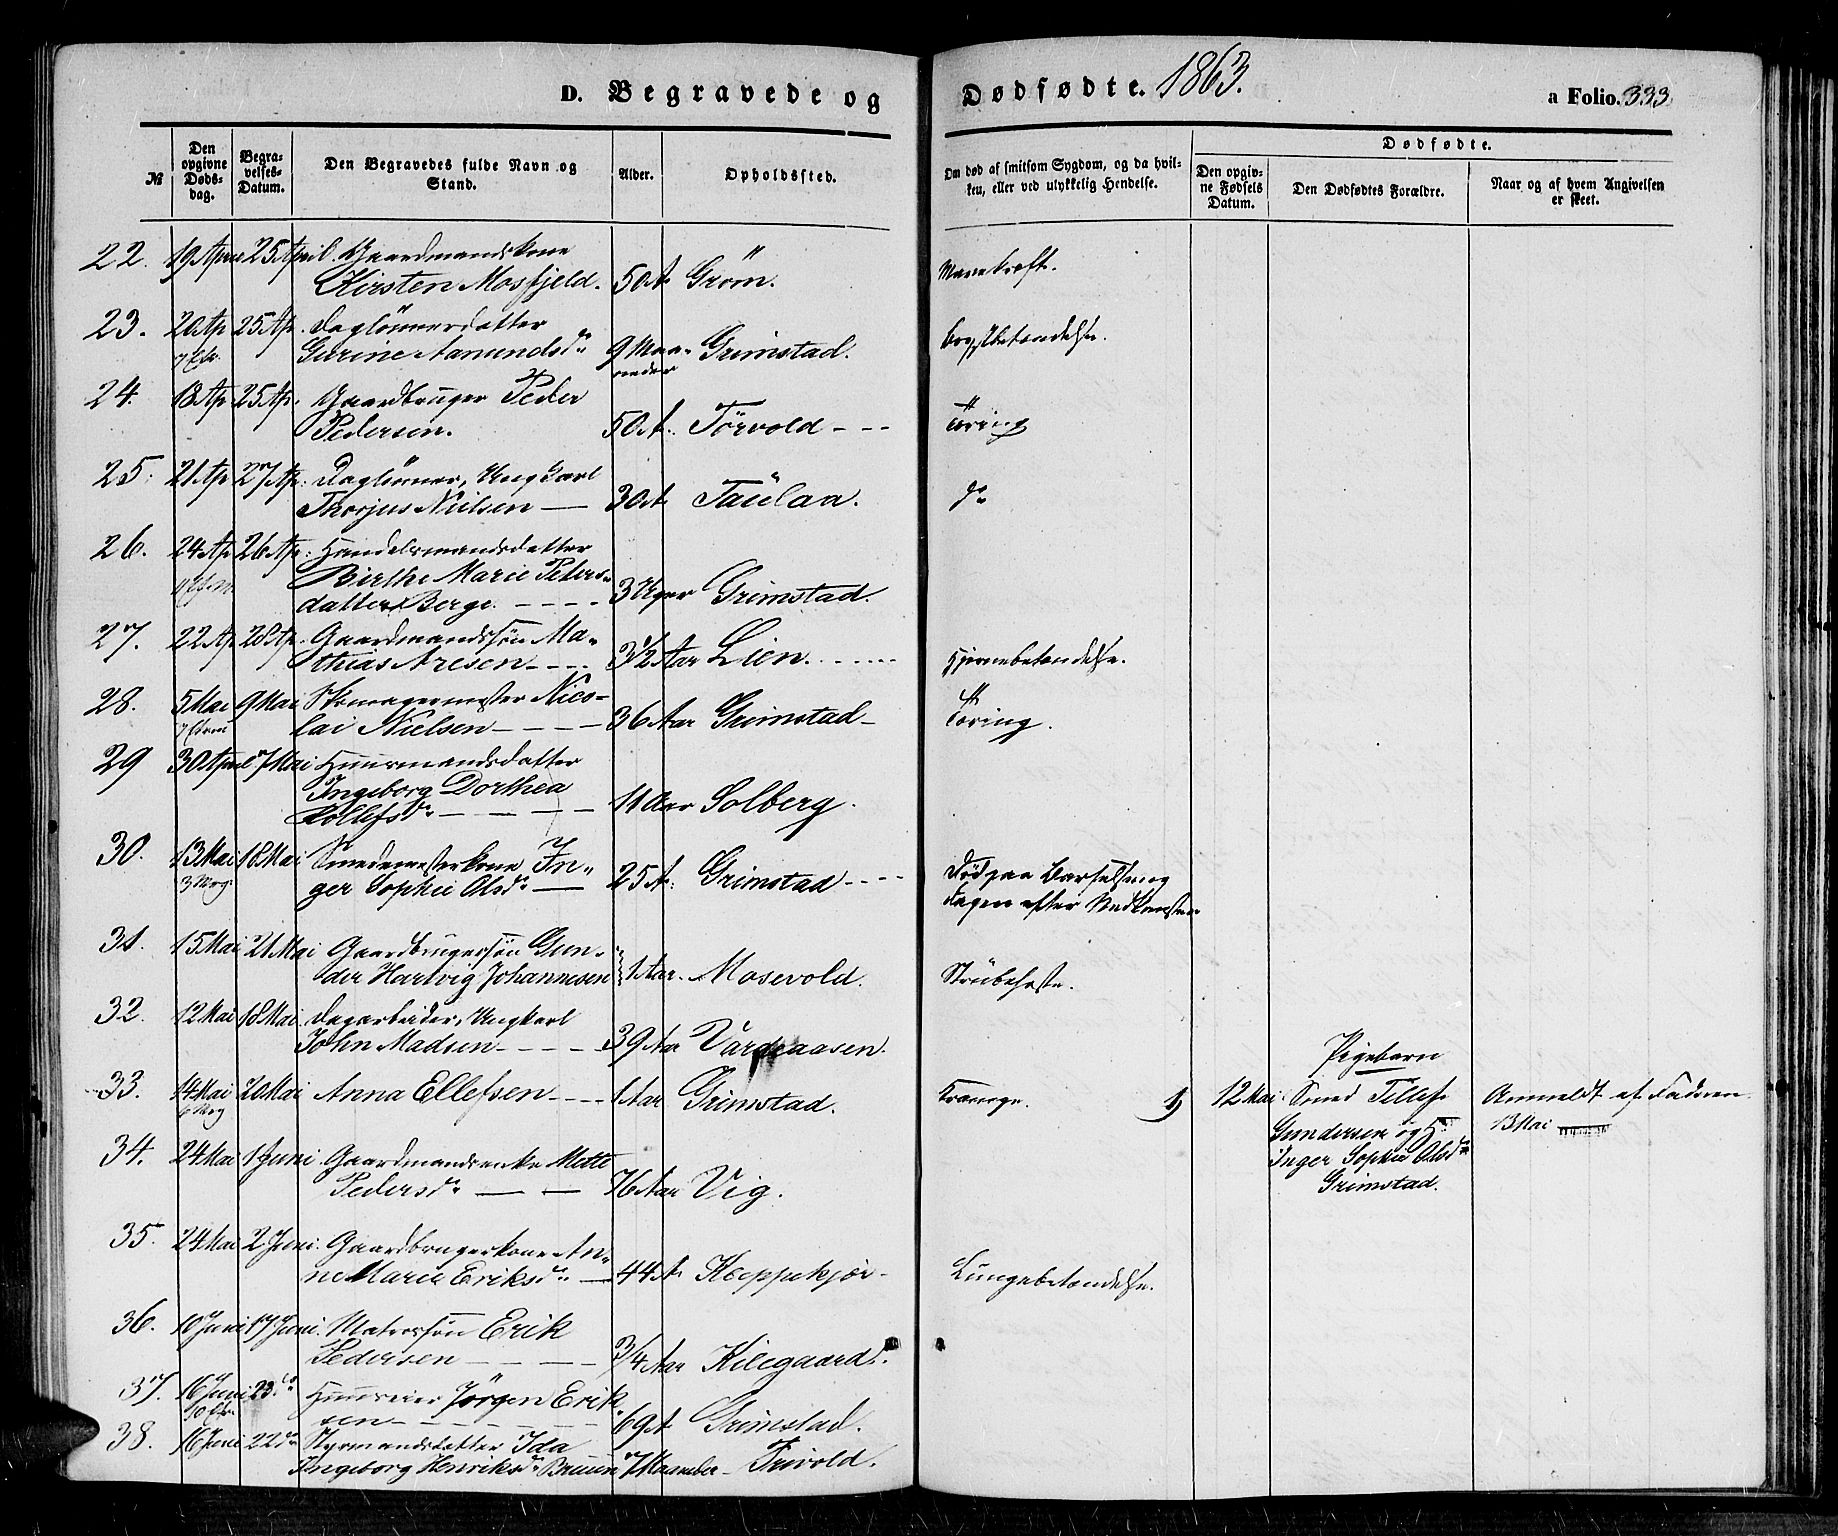 D. Begravede og Dødfødte. 1863. a Folio. 333.
№ Den opgivne Døds-dag. Begra-velses-Datum. Den Begravedes fulde Navn og Stand. Alder. Opholdssted. Om død af smitsom Sygdom, og da hvil-ken, eller ved ulykkelig Hendelse. Dødfødte.
Den opgiv-ne Fødsels Datum. Den Dødfødtes Forældre. Naar og af hvem Angivelsen er skeet.
22. 19 April 25 April. Gaardmandskone
Kirsten Mosfjeld. 50 A. Grøm.
23. 20 Ap 25 Ap. Daglønnerdatter
7 Efr. Gurine Aamundsdr 9 Maa- Grimstad. Brystbetændelse.
neder
24. 18 Ap 25 Ap. Gaardbruger Peder
Pedersen. 50 A. Törvold - - - Tæring
25. 21 Ap 27 Ap. Daglönner, Ungkarl
Thorjus Nielsen — 30 A Taulaa. do
26. 24 Ap 26 Ap. Handelsmandsdatter
Birthe Marie Peters-
datter Berge. - - - - 3 Uger Grimstad.
27. 22 Ap 28 Ap. Gaardmandssön Ma-
thias Aresen - - - 3½ Aar Lien. Hjernebetændelse.
28. 5 Mai 9 Mai Skomagermester Nico-
lai Nielsen - - - - 36 Aar Grimstad - Tæring.
29 30 April 7 Mai Huusmandsdatter
Ingeborg Dorthea
Tollefsdr - - - - 11 Aar Solberg.
30. 13 Mai 18 Mai Smedemesterkone In-
3 Mrg. ger Sophie Olsdr — 25 A. Grimstad - - - - Död paa Barselseng
Dagen efter Nedkomsten
31. 15 Mai 21 Mai Gaardbrugersön Gun-
der Hartvig Johannesen 1 Aar. Mosevold. Strubehoste.
32. 12 Mai 18 Mai Dagarbeider, Ungkarl
John Madsen - - - - 39 Aar Vardeaasen.
Pigebarn
33. 14 Mai 20 Mai Anna Ellefsen - - - - 1 Aar Grimstad. Krampe. 1) 12 Mai Smed Tellef Anmeldt af Faderen
6 Mrg Gundersen og 13 Mai
Inger Sophie Olsdr
Grimstad.
34. 24 Mai 1 Juni Gaardmandsenke Mette
Pedersdr — — 76 Aar Vig.
35. 24 Mai 2 Juni. Gaardbrugerkone An-
ne Marie Eriksdr — 44 A. Kleppekjær - Lungebetændelse.
36. 10 Juni 17 Juni. Matrossön Erik
Pedersen - - - - 3/4 Aar Kilegaard.
37. 16 Juni 23 do Huuseier Jörgen Erik-
10 Efr. sen - - - - 69 A Grimstad.
38. 16 Juni 22 do Styrmandsdatter Ida
Ingeborg Henriksdr Bruun 7 Maaneder - Frivold.